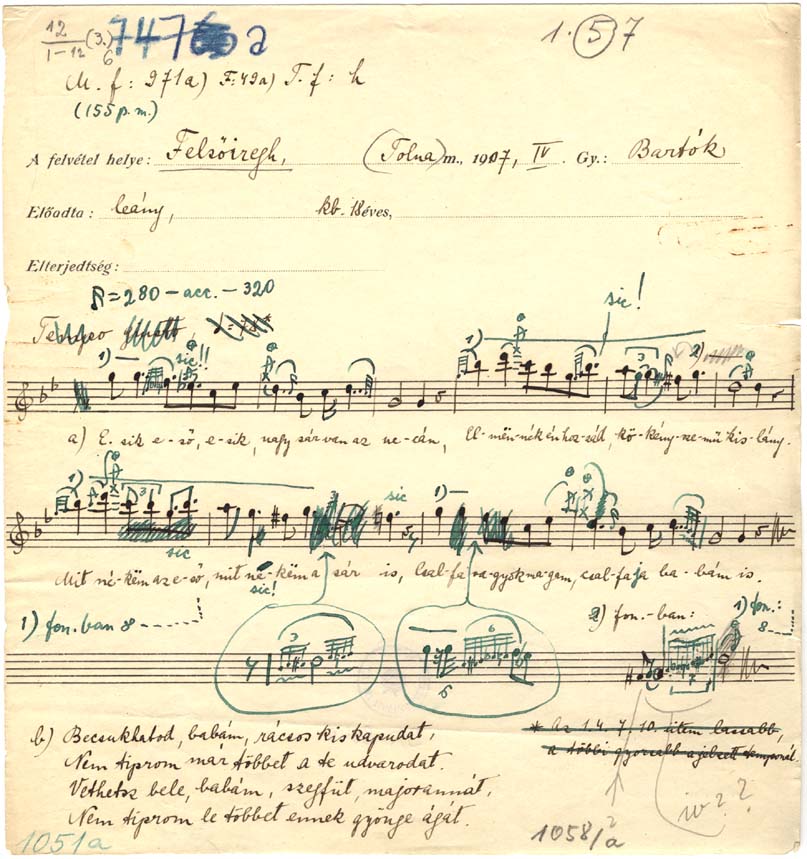 12
1-12 (3.) 6 747 a 1. 5 7
M. f: 971a) F: 49a) T. f: h
(155 p. m.)
A felvétel helye: Felsőiregh, (Tolna) m., 1907, IV. Gy.: Bartók
Előadta: leány, kb. 18 éves,
Elterjedtség:
♪=280 - acc. - 320
sic!
1) sic!! 1) 3 2)
a) E-sik e-ső, e-sik, nagy sár van az ne-cán, El-mën-nék én hoz-zád, kö-kény-sze-mű kis-lány.
1) 3 sic 1)
sic
Mit né-këm az e-ső, mit né-këm a sár is, Csal-fa va-gyok ma-gam, csal-fa ja ba-bám is.
sic!
1) fon. ban 8 2) fon.-ban: 1) fon.: 8
3 6 7
6
b) Becsuklatod, babám, rácsos kis kapudat,
Nem tiprom már többet a te udvarodat.
Vethetsz bele, babám, szegfűt, majorannát,
Nem tiprom le többet ennek gyönge ágát.
* Az 1. 4. 7. 10. ütem lassabb,
a többi gyorsabb a jelzett temponál.
1051a 1058/a